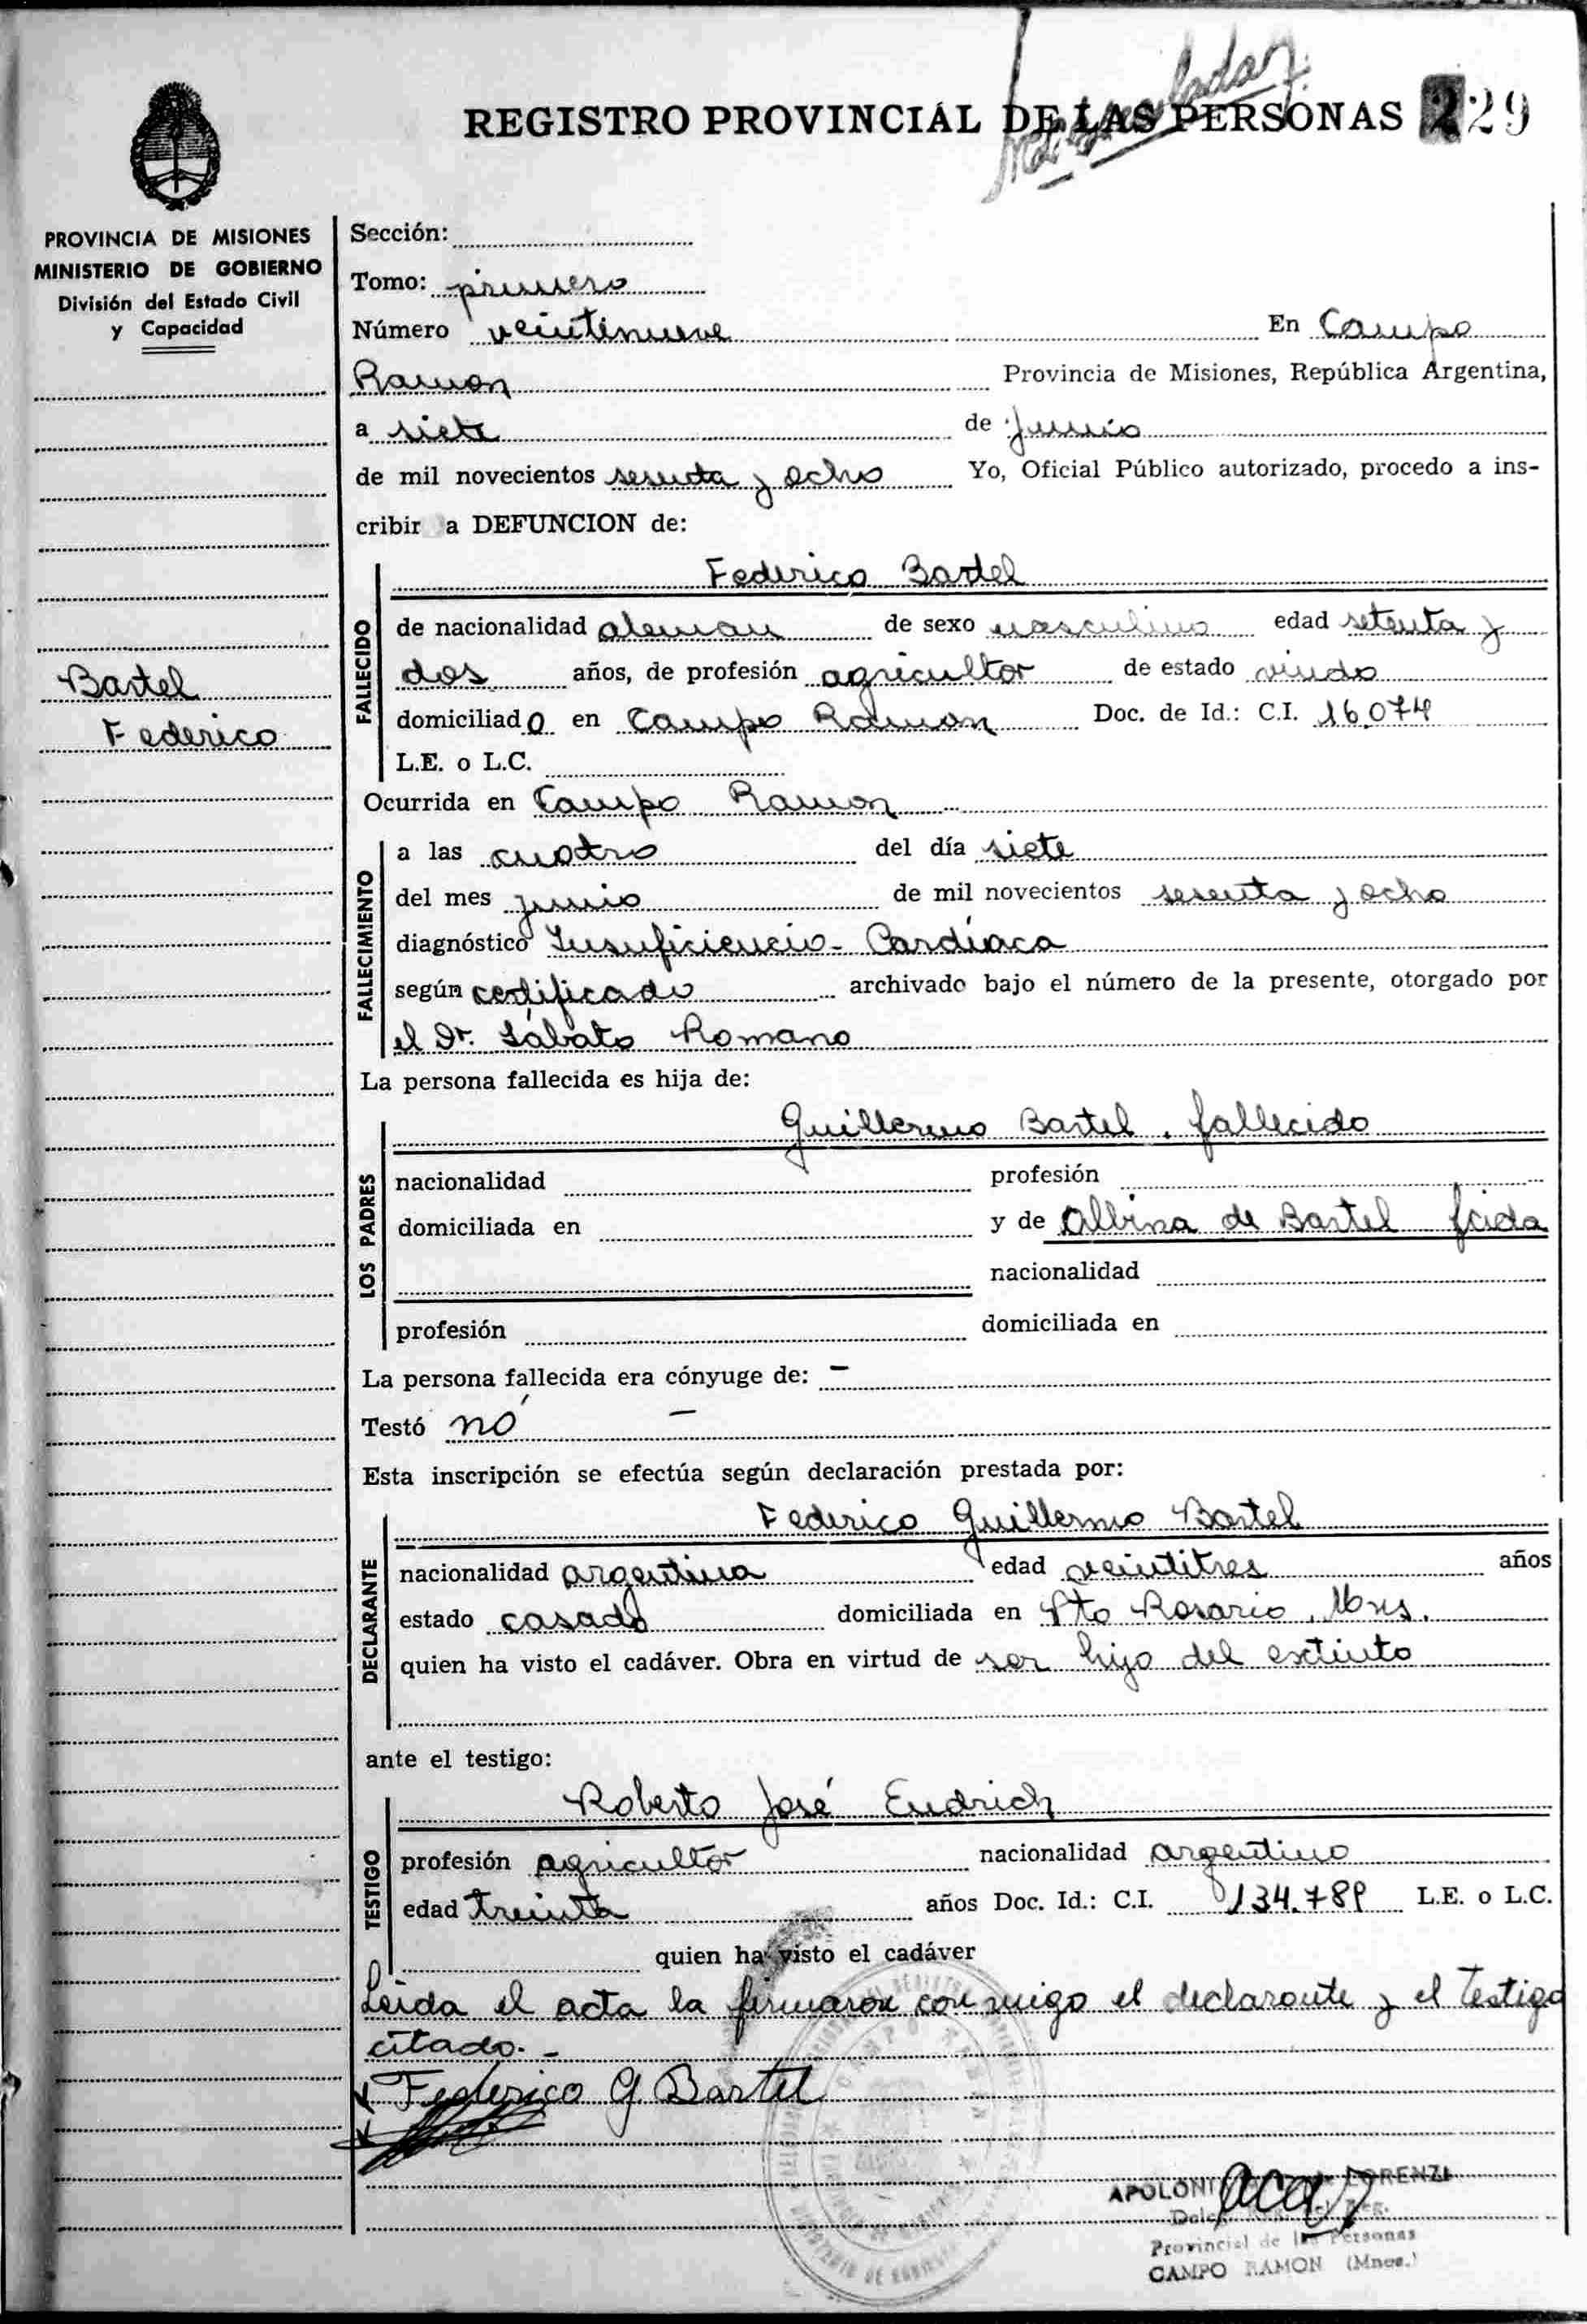 REGISTRO PROVINCIAL DE LAS PERSONAS 229
PROVINCIA DE MISIONES
MINISTERIO DE GOBIERNO
División del Estado Civil
y Capacidad
Bartel
Federico
Sección:
Tomo: primero
Número veintinueve En Campo
Ramon Provincia de Misiones, República Argentina,
a siete de junio
de mil novecientos sesenta y ocho Yo, Oficial Público autorizado, procedo a ins-
cribir a DEFUNCION de:
Federico Bartel
FALLECIDO
de nacionalidad aleman de sexo masculino edad setenta y
dos años, de profesión agricultor de estado viudo
domiciliado en Campo Ramon Doc. de Id.: C.I. 16.074
L.E. o L.C.
Ocurrida en Campo Ramon
FALLECIMIENTO
a las cuatro del día siete
del mes junio de mil novecientos sesenta y ocho
diagnóstico Insuficiencia - Cardíaca
según certificado archivado bajo el número de la presente, otorgado por
el Dr. Sábato Romano
La persona fallecida es hija de:
Guillermo Bartel, fallecido
LOS PADRES
nacionalidad profesión
domiciliada en y de Albina de Bartel fcida
nacionalidad
profesión domiciliada en
La persona fallecida era cónyuge de: -
Testó nó -
Esta inscripción se efectúa según declaración prestada por:
Federico Guillermo Bartel
DECLARANTE
nacionalidad argentina edad veintitres años
estado casado domiciliada en Pto Rosario, Mns.
quien ha visto el cadáver. Obra en virtud de ser hijo del extinto
ante el testigo:
Roberto José Endrich
TESTIGO
profesión agricultor nacionalidad argentino
edad treinta años Doc. Id.: C.I. 134.789 L.E. o L.C.
quien ha visto el cadáver
Leida el acta la firmaron conmigo el declarante y el testigo
citado. -
Federico G. Bartel
LORENZI
Provincial de las Personas
CAMPO RAMON (Mnes.)